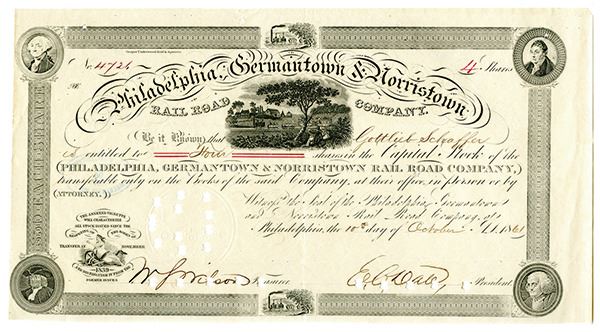 No. 4724
4 Shares
Philadelphia, Germantown & Norristown
RAIL ROAD COMPANY.
Be it Known that Gottlieb Schaffer
is entitled to Four shares in the Capital Stock of the
(PHILADELPHIA, GERMANTOWN & NORRISTOWN RAIL ROAD COMPANY,)
transferable only on the Books of the said Company, at their office, in person or by
(ATTORNEY.)
Witness the Seal of the Philadelphia, Germantown
and Norristown Rail Road Company, at
Philadelphia, the 10th day of October A.D. 1861
THE ANNEXED VIGNETTE
WILL CHARACTERIZE
ALL STOCK ISSUED SINCE THE
TRANSFER AT
NOVEMBER
1859
FORMER ISSUES
Treasurer
President